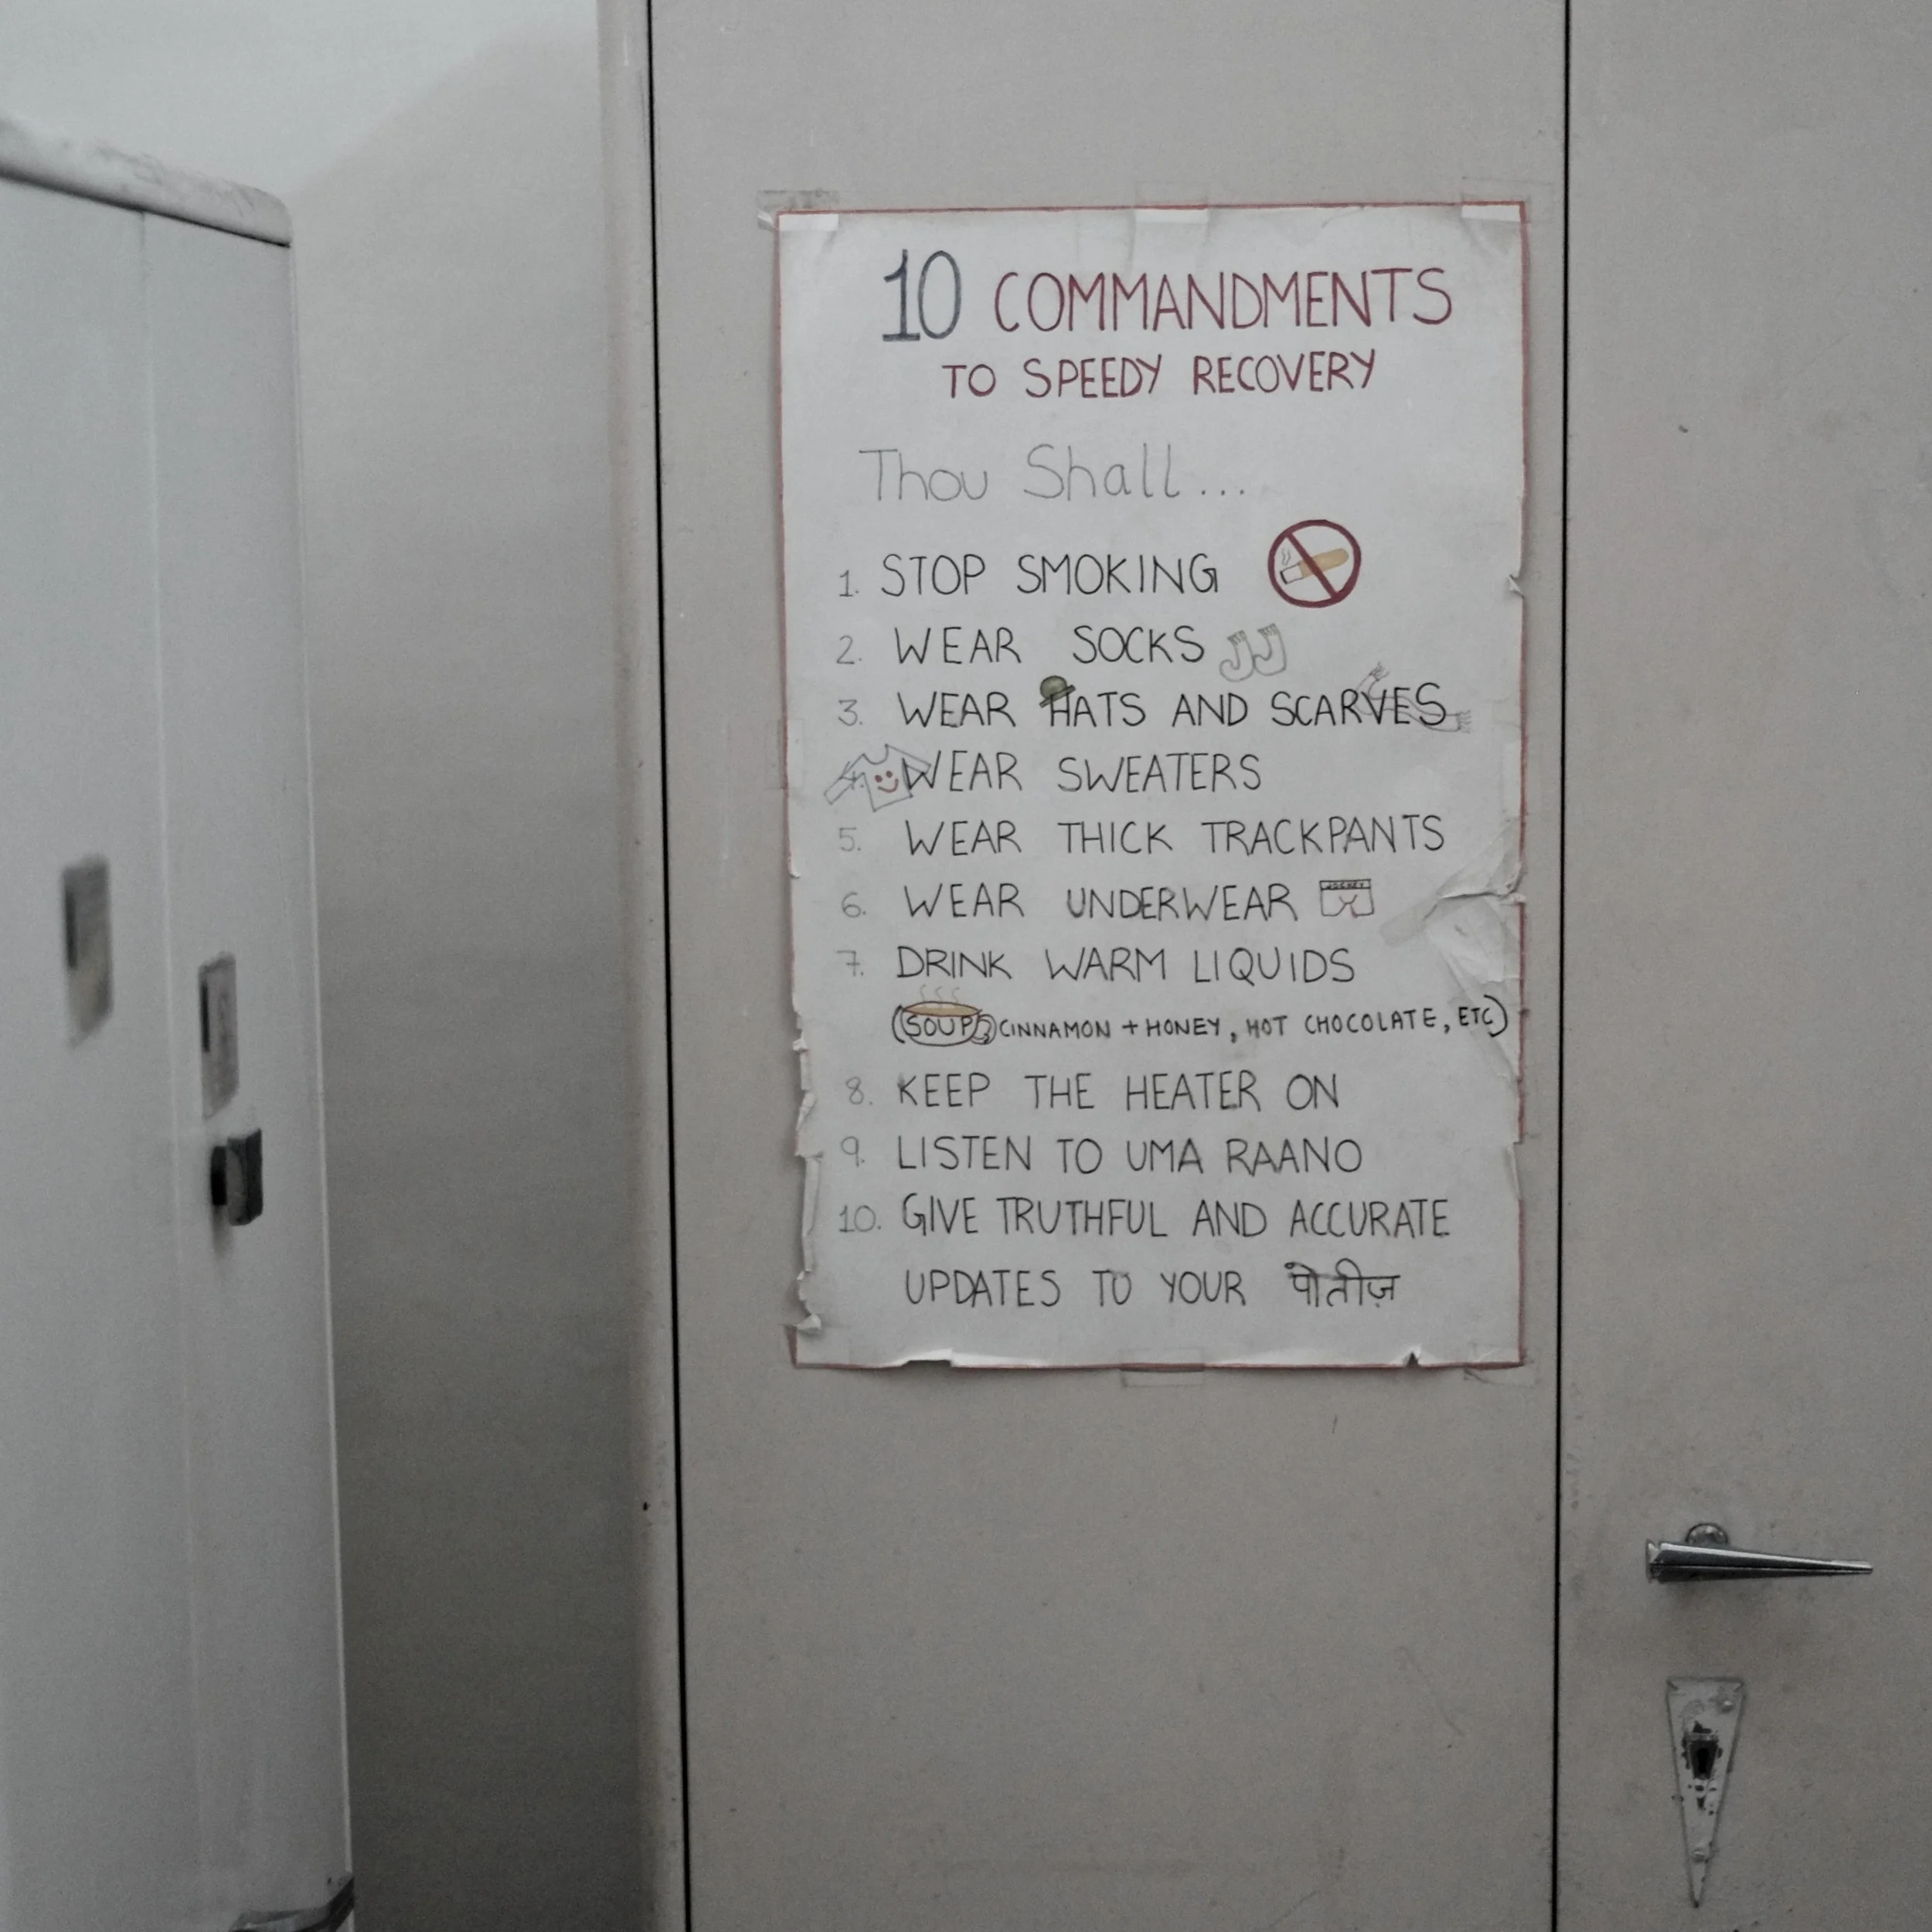 10 COMMANDMENTS
TO SPEEDY RECOVERY
Thou Shall...
1. STOP SMOKING
2. WEAR SOCKS
3. WEAR HATS AND SCARVES
4. WEAR SWEATERS
5. WEAR THICK TRACKPANTS
6. WEAR UNDERWEAR JOCKEY
7. DRINK WARM LIQUIDS
(SOUP, CINNAMON + HONEY, HOT CHOCOLATE, ETC)
8. KEEP THE HEATER ON
9. LISTEN TO UMA RAANO
10. GIVE TRUTHFUL AND ACCURATE
UPDATES TO YOUR पोतीज़